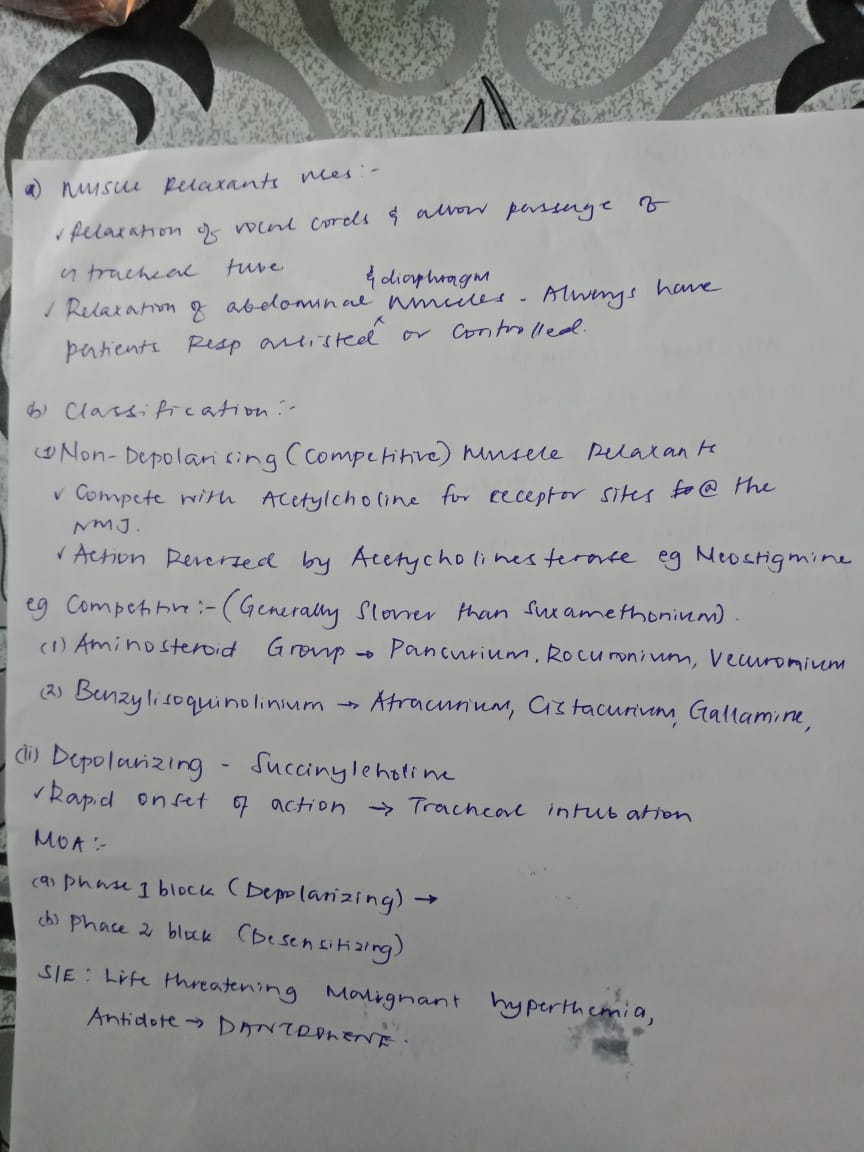 a) Muscle Relaxants uses:-
✓ Relaxation of vocal cords & allow passage of
a tracheal tube
& diaphragm
✓ Relaxation of abdominal ^ muscles. Always have
patients Resp assisted or controlled.
b) Classification:-
(i) Non-Depolarising (Competitive) Muscle Relaxants
✓ Compete with Acetylcholine for receptor sites @ the
NMJ.
✓ Action Reversed by Acetycholinesterase eg Neostigmine
eg Competitive:- (Generally Slower than Suxamethonium).
(1) Aminosteroid Group → Pancurium, Rocuronium, Vecuromium
(2) Benzylisoquinolinium → Atracurium, Cistacurium, Gallamine,
(ii) Depolarizing - Succinylcholine
✓ Rapid onset of action → Tracheal intubation
MOA:-
(a) Phase 1 block (Depolarizing) →
(b) Phace 2 block (Desensitizing)
S/E: Life threatening Malignant hyperthemia,
Antidote → DANTROLENE.